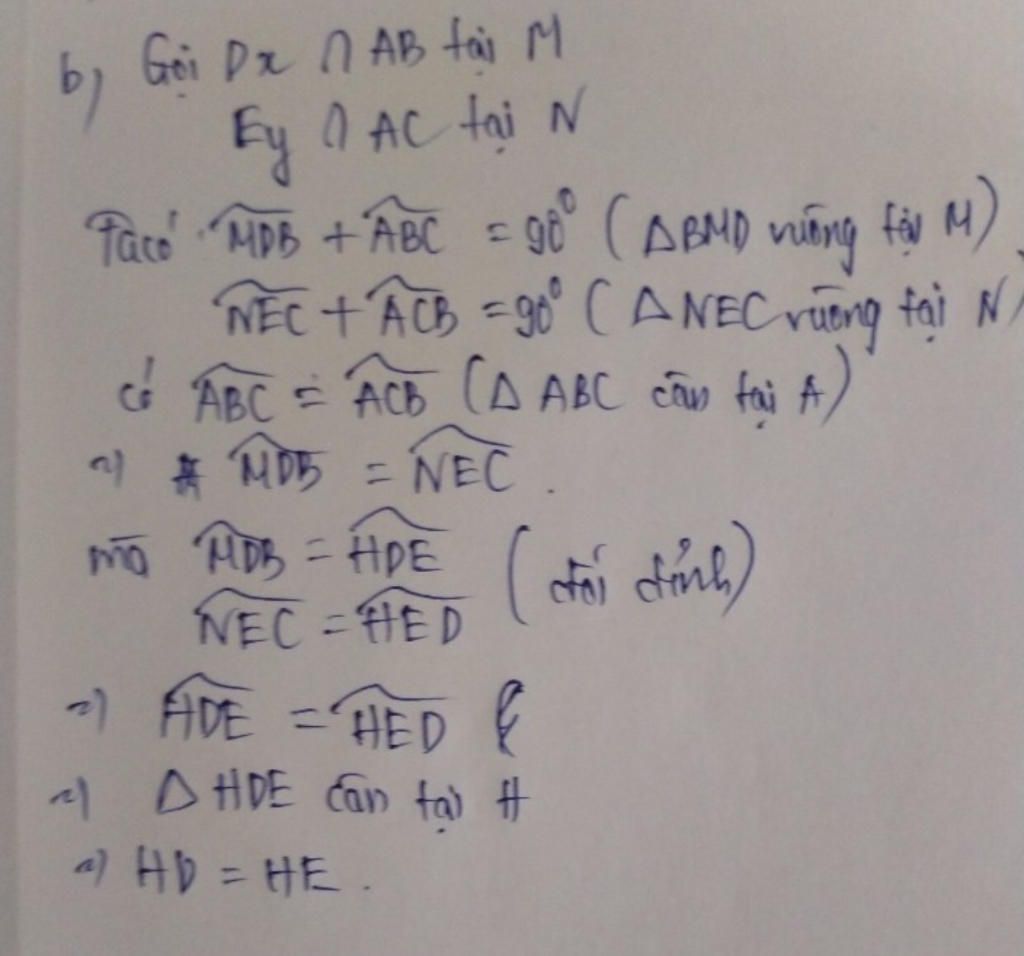 b, Gọi Dx ∩ AB tại M
Ey ∩ AC tại N
Ta có MDB + ABC = 90° (ΔBMD vuông tại M)
NEC + ACB = 90° (ΔNEC vuông tại N)
có ABC = ACB (Δ ABC cân tại A)
=> MDB = NEC.
mà MDB = HDE (đối đỉnh)
NEC = HED
=> HDE = HED
=> Δ HDE cân tại H
=> HD = HE.